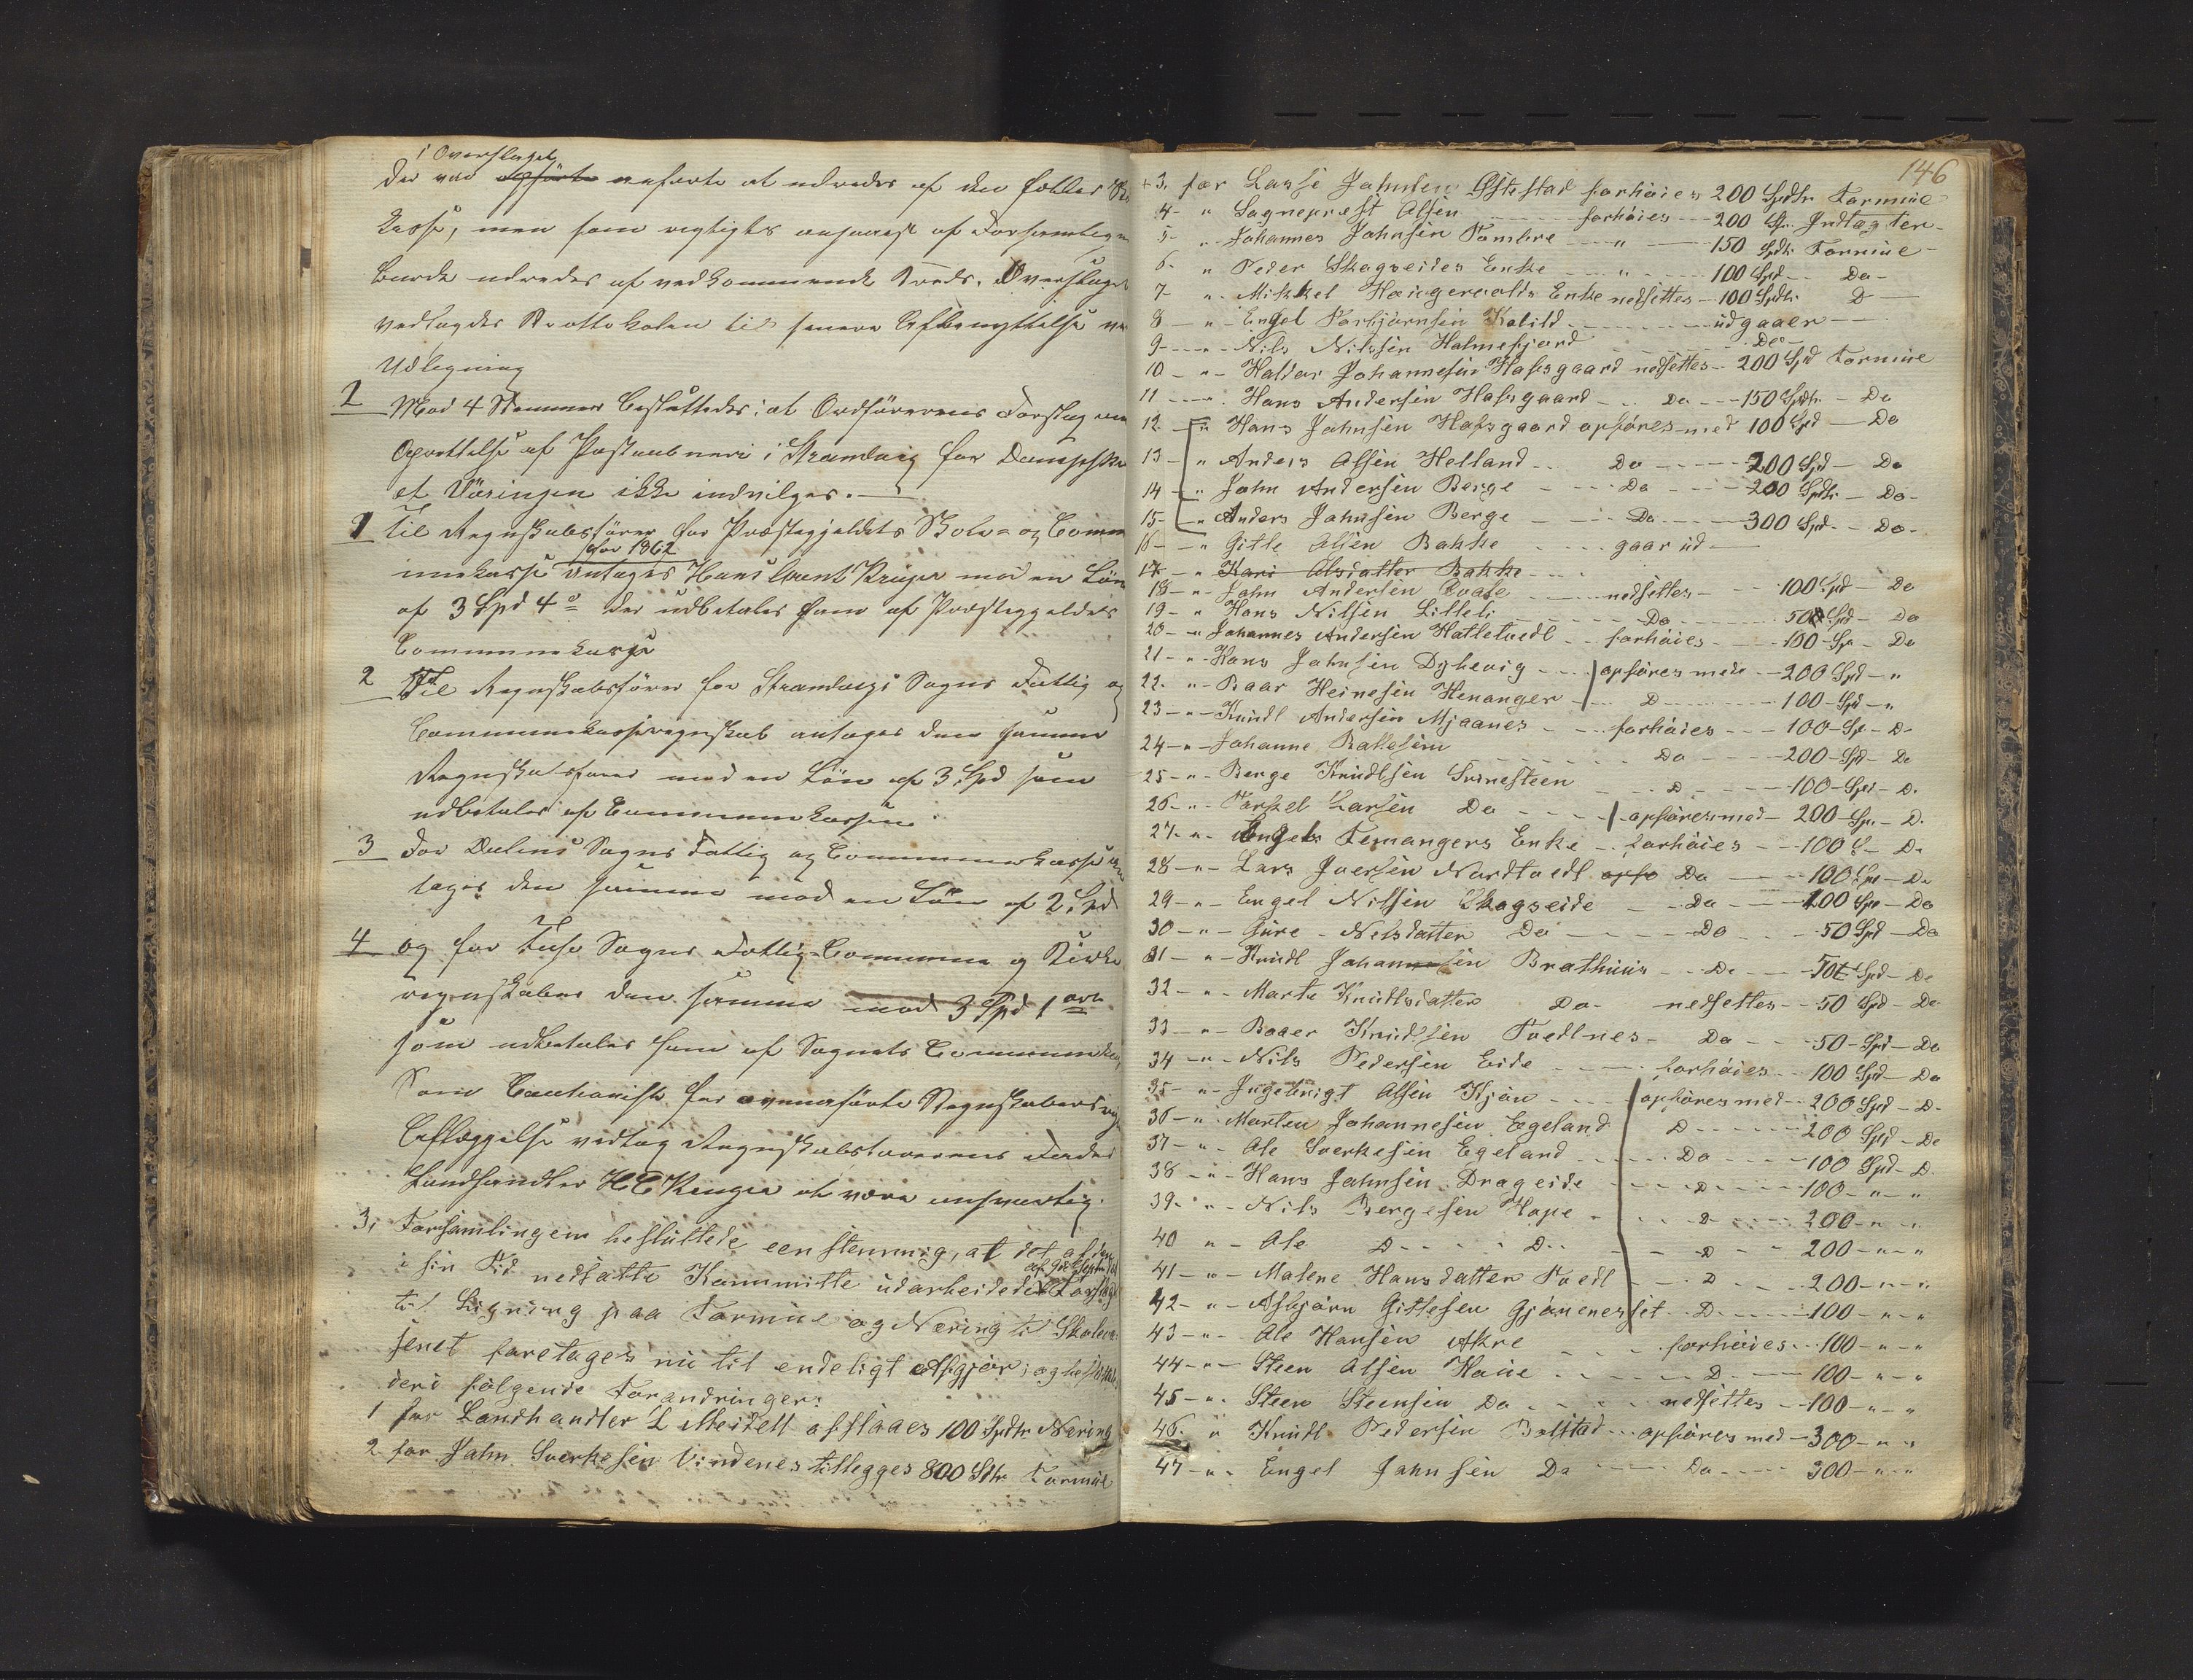 i Overslaget
der var opførte anførte at udredes af den fælles
kasse, men som rigtigst ansaaes af Forsamlingen
burde udredes af vedkommende Sogns. Overslaget
vedlagdes Protokolen til senere Afbenyttelse ved
Udligning
2 Med 4 Stemmer besluttedes: at Ordførerens Forslag om
Oprettelse af Postaabneri i Strandvig for Dampski
et Væringen ikke indvilges.
1 Til Regnskabsfører for Præstegjeldets Skole- og Comm
for 1862
unekasse antages Hans Grent Krüger mod en Løn
af 3 Spd 4 der udbetales ham af Præstegjeldets
Communekasse
2 Til Regnskabsfører for Strandvigs Sogns Fattig og
Communekasseregnskab antages den samme
Regnskabsfører mod en Løn af 3 Spd som
udbetales af Communekassen
3 For Dalens Sogns Fattig og Communekasse an
tages den samme mod en Løn af 2 Spd
4 og for Fuse Sogns Fattig- Commune og Kirke
regnskaber den samme mod 3 Spd 1 ort
som udbetales ham af Sognets Communekas
Som Cautionist for ovenanførte Regnskabers rig
Aflæggelse vedtog Regnskabsførerens Fader
Landhandler H C Krüger at være ansvarlig.
3, Forsamlingen besluttede eenstemmig, at det af den
i sin Tid nedsatte Kommitte udarbeidede Forslag
til Ligning paa Formue og Næring til Skolevæ
senet foretages nu til endeligt Afgjør; og beslutte
deri følgende Forandringer:
1 for Landhandler L Meidell afslaaes 100 Spdlr Næring
2 for Jahn Sverkesen Vindenes tillegges 800 Sdlr Formue
146
+3. for Lasse Jahnsen Østestad forhøies 200 Spdlr Formue
4- " Sogneprest Alsen forhøies - 200 Sp. Indtægter
5- " Johannes Jahnsen Tombre - " - 150 Spdlr Formue
6- " Peder Skagseides Enke - " - 100 Spd - Do-
7- " Mikkel Haugeraalds Enke nedsettes - 100 Spdlr D
8- " Engel Torbjørnsen Kolild - udgaaer
9- " Nils Nilssen Holmefjord - Do-
10- " Haldor Johannesen Hafsgaard nedsettes - 200 Spd Formue
11- " Hans Andersen Hafsgaard - Do - 150 Spdlr - Do
12- " Hans Jahnsen Hafsgaard opføres med 100 Spd - Do
13- " Anders Alsen Helland - Do - 200 Spd - Do
14- " Jahn Andersen Berge - Do - 200 Spdlr - Do-
15- " Anders Jahnsen Berge - Do - 300 Spd - Do-
16- " Gitle Alsen Bakke - gaar ud
17- " Kari Alsdatter Bakke
18- " Jahn Andersen Qvale - nedsettes - 100 Spd - Do
19- " Hans Nilsen Litleli - Do - 50 Spd - Do
20- " Johannes Andersen Hatletvedt - forhøies - 100 Sp - Do
21- " Hans Jahnsen Dyhevig - opføres med - 200 Spd - "
22- " Baar Heinesen Henanger - D - 100 Spd - "
23- " Knudt Andersen Mjaanes - forhøies - 100 Sp - D-
24- " Johanne Ballesen - Do - 200 Spd - Do
25- " Berge Knudtsen Svinesteen - D - 100 Spd - D.
26- " Torkel Larsen Do - opføres med - 200 Sp. - D.
27- " Engels Femangers Enke - forhøies - 100 S - Do
28- " Lars Iversen Nordtvedt opfø Do - 100 Spd - Do
29- " Engel Nilsen Skagseide - Do - 100 Spd - Do
30- " Gure - Nilsdatter Do - Do - 50 Spd - Do
31- " Knudt Johannesen Brathuus - Do - 50 Spd - Do
32- " Marte Knudtsdatter Do - nedsettes - 50 Spd - Do
33- " Baaer Knudtsen Tvedtnes - Do - 50 Spd - Do
34- " Nils Pedersen Eide - forhøies - 100 Spd - Do
35- " Ingebrigt Alsen Kjøn - opføres med - 200 Spd - D-
36- " Marten Johannesen Egeland D - 200 Spd - Do
37- " Ole Sverkesen Egeland - Do - 100 Spd - D.
38- " Hans Jahnsen Drageide - D - 100 - " - "
39- " Nils Bergesen Hope - D - 200 - " - "
40 " - Ole D - D - D - 200 - " - "
41- " - Malene Hansdatter Tvedt - D - 200 - " - "
42- " - Asbjørn Gitlesen Gjønenesset - D - 100 - " - "
43- " - Ole Hansen Akre - forhøies - 100 - " - "
44- " - Steen Alsen Haue - D - 100 - " - "
45- " Steen Steensen Do - nedsettes - 100 - " - "
46. " Knudt Pedersen Bolstad - opføres med - 300 - " - "
47- " Engel Jahnsen Do - Do - 300 - " - "